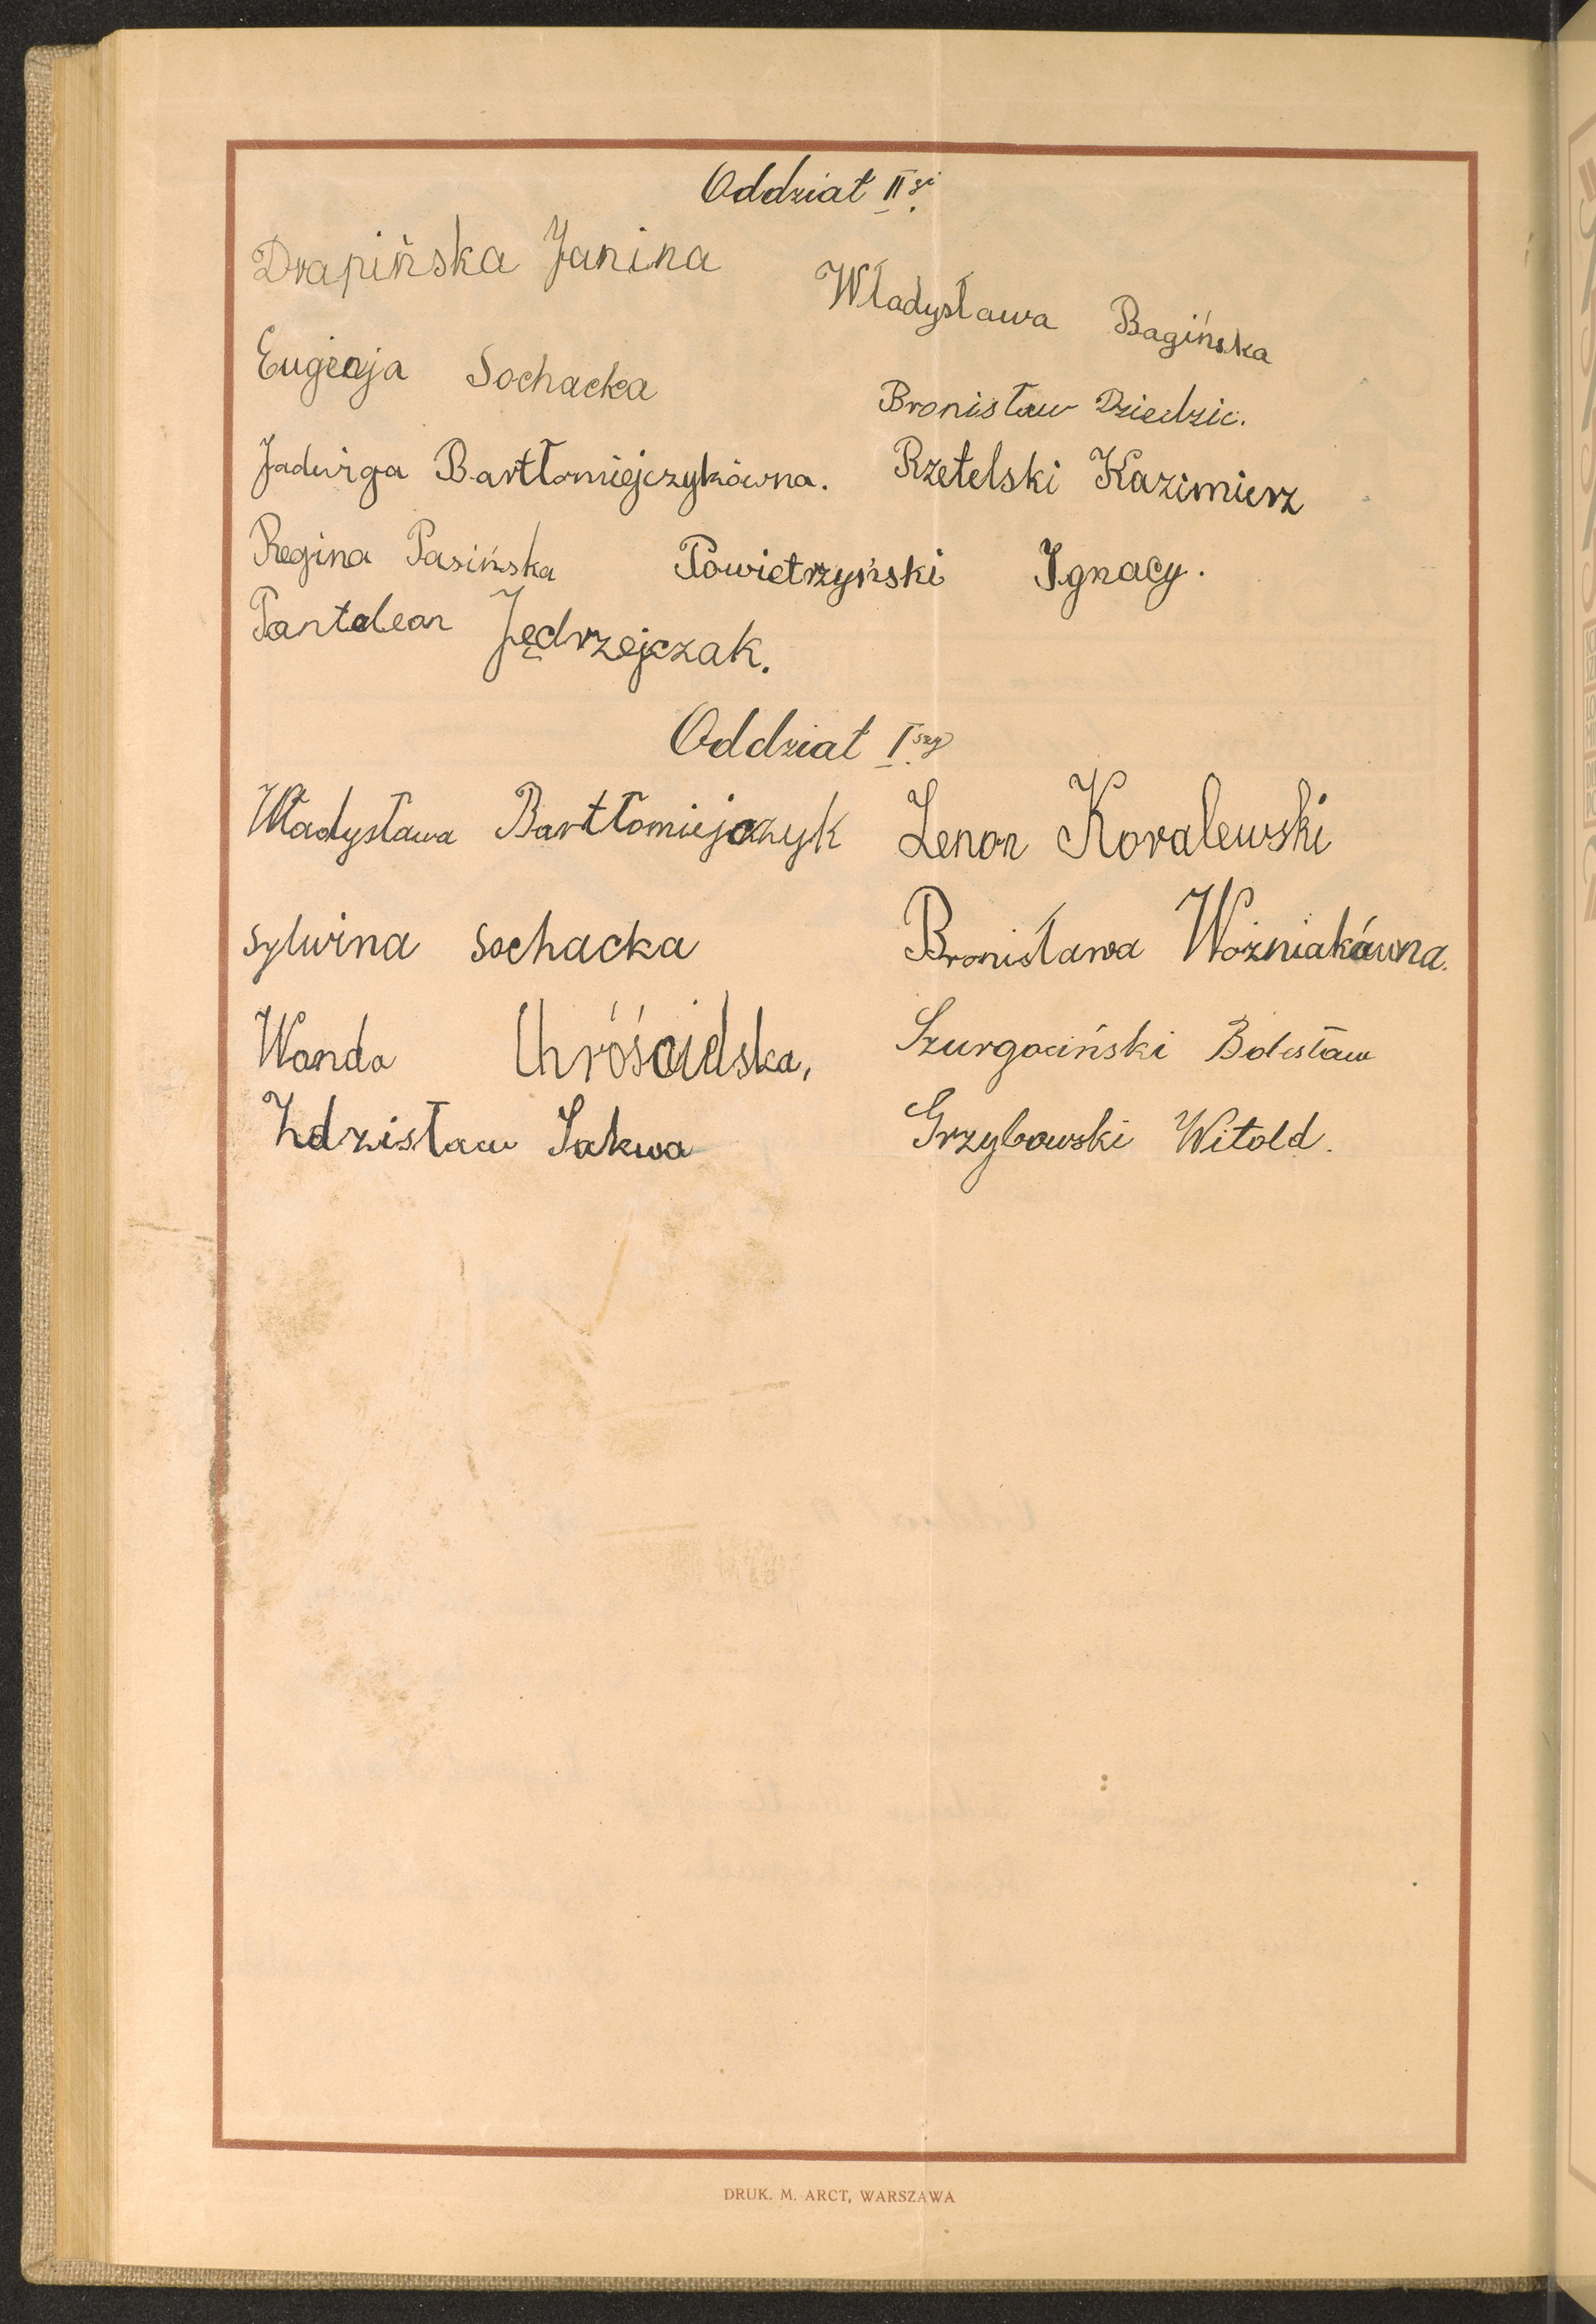 Oddział II gi
Drapińska Janina
Władysława Bagińska
Eugenja Sochacka
Bronisław Dziedzic.
Jadwiga Bartłomiejczykówna. Rzetelski Kazimierz
Regina Pasińska Powietrzyński Ignacy.
Pantaleon Jędrzejczak.
Oddział I szy
Władysława Bartłomiejczyk Zenon Kovalewski
Sylwina Sochacka Bronisława Woźniakówna.
Wanda Chróścielska, Szurgociński Bolesław
Zdzisław Sakwa Grzybowski Witold.
DRUK. M. ARCT, WARSZAWA